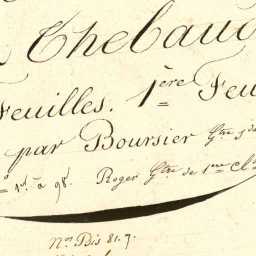 Thebaud
Feuilles. 1ère Feu
par Boursier Gtre
à 98. Roger Gtre de 1ère Cl
Nos Bis 81.7.